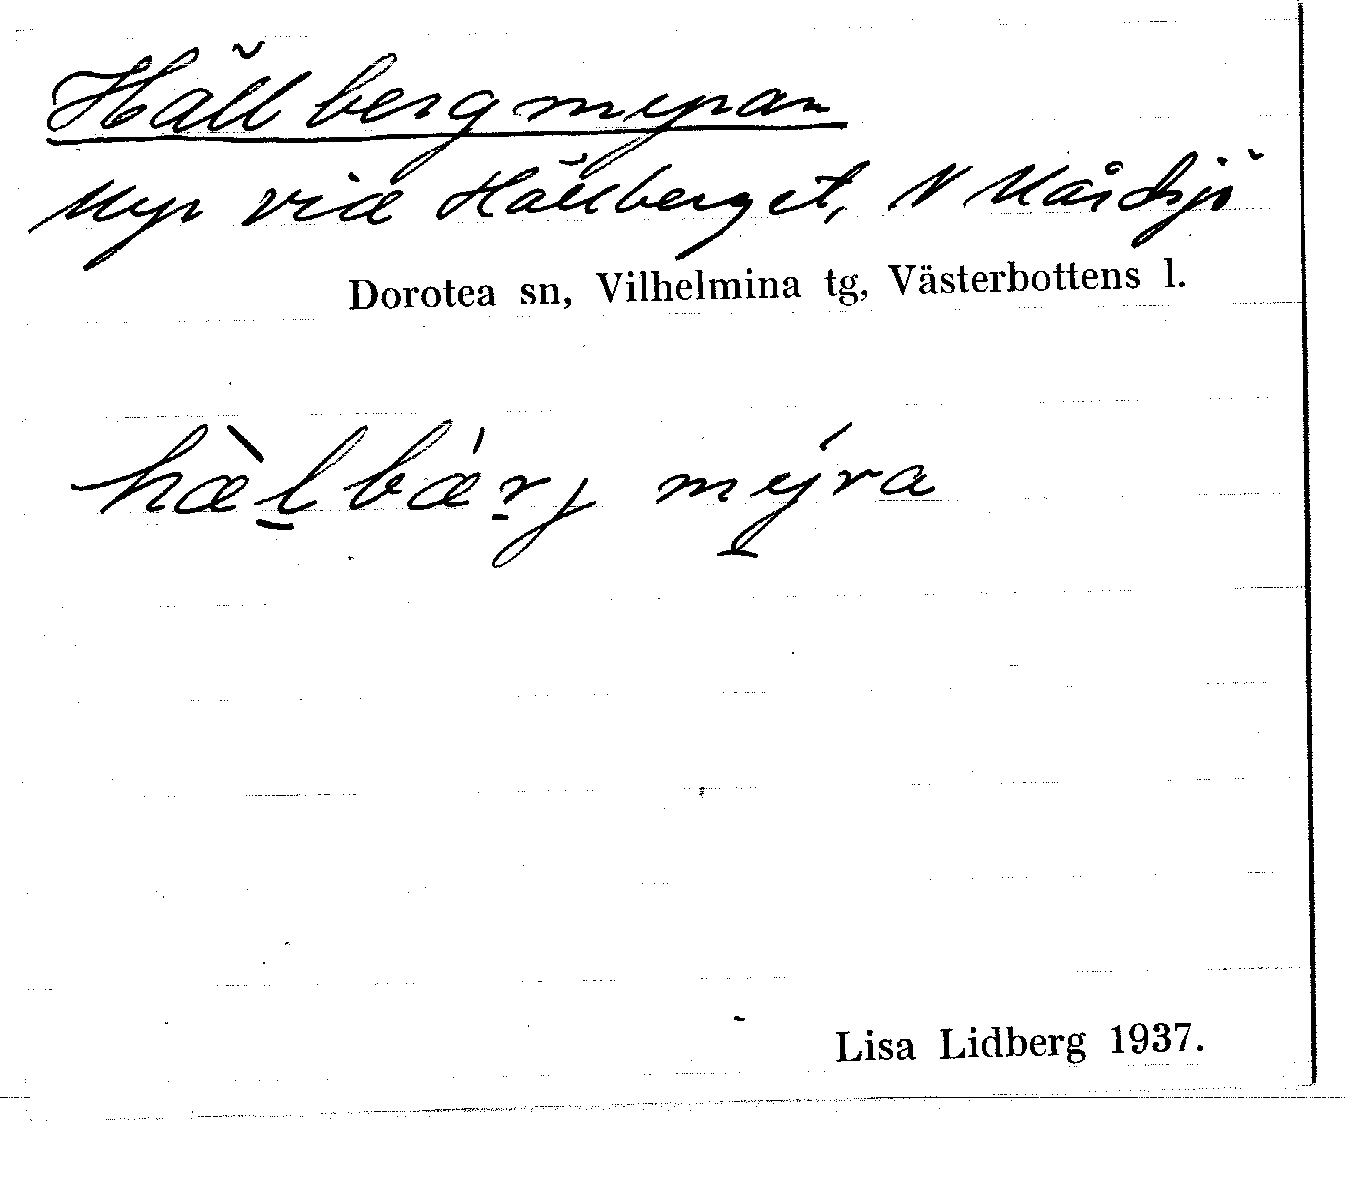 Hällbergmyran
Myr vid Hällberget, N Mårdsjö
Dorotea sn, Vilhelmina tg, Västerbottens l.
hæ̀l̲bǽr̲j mýra
Lisa Lidberg 1937.